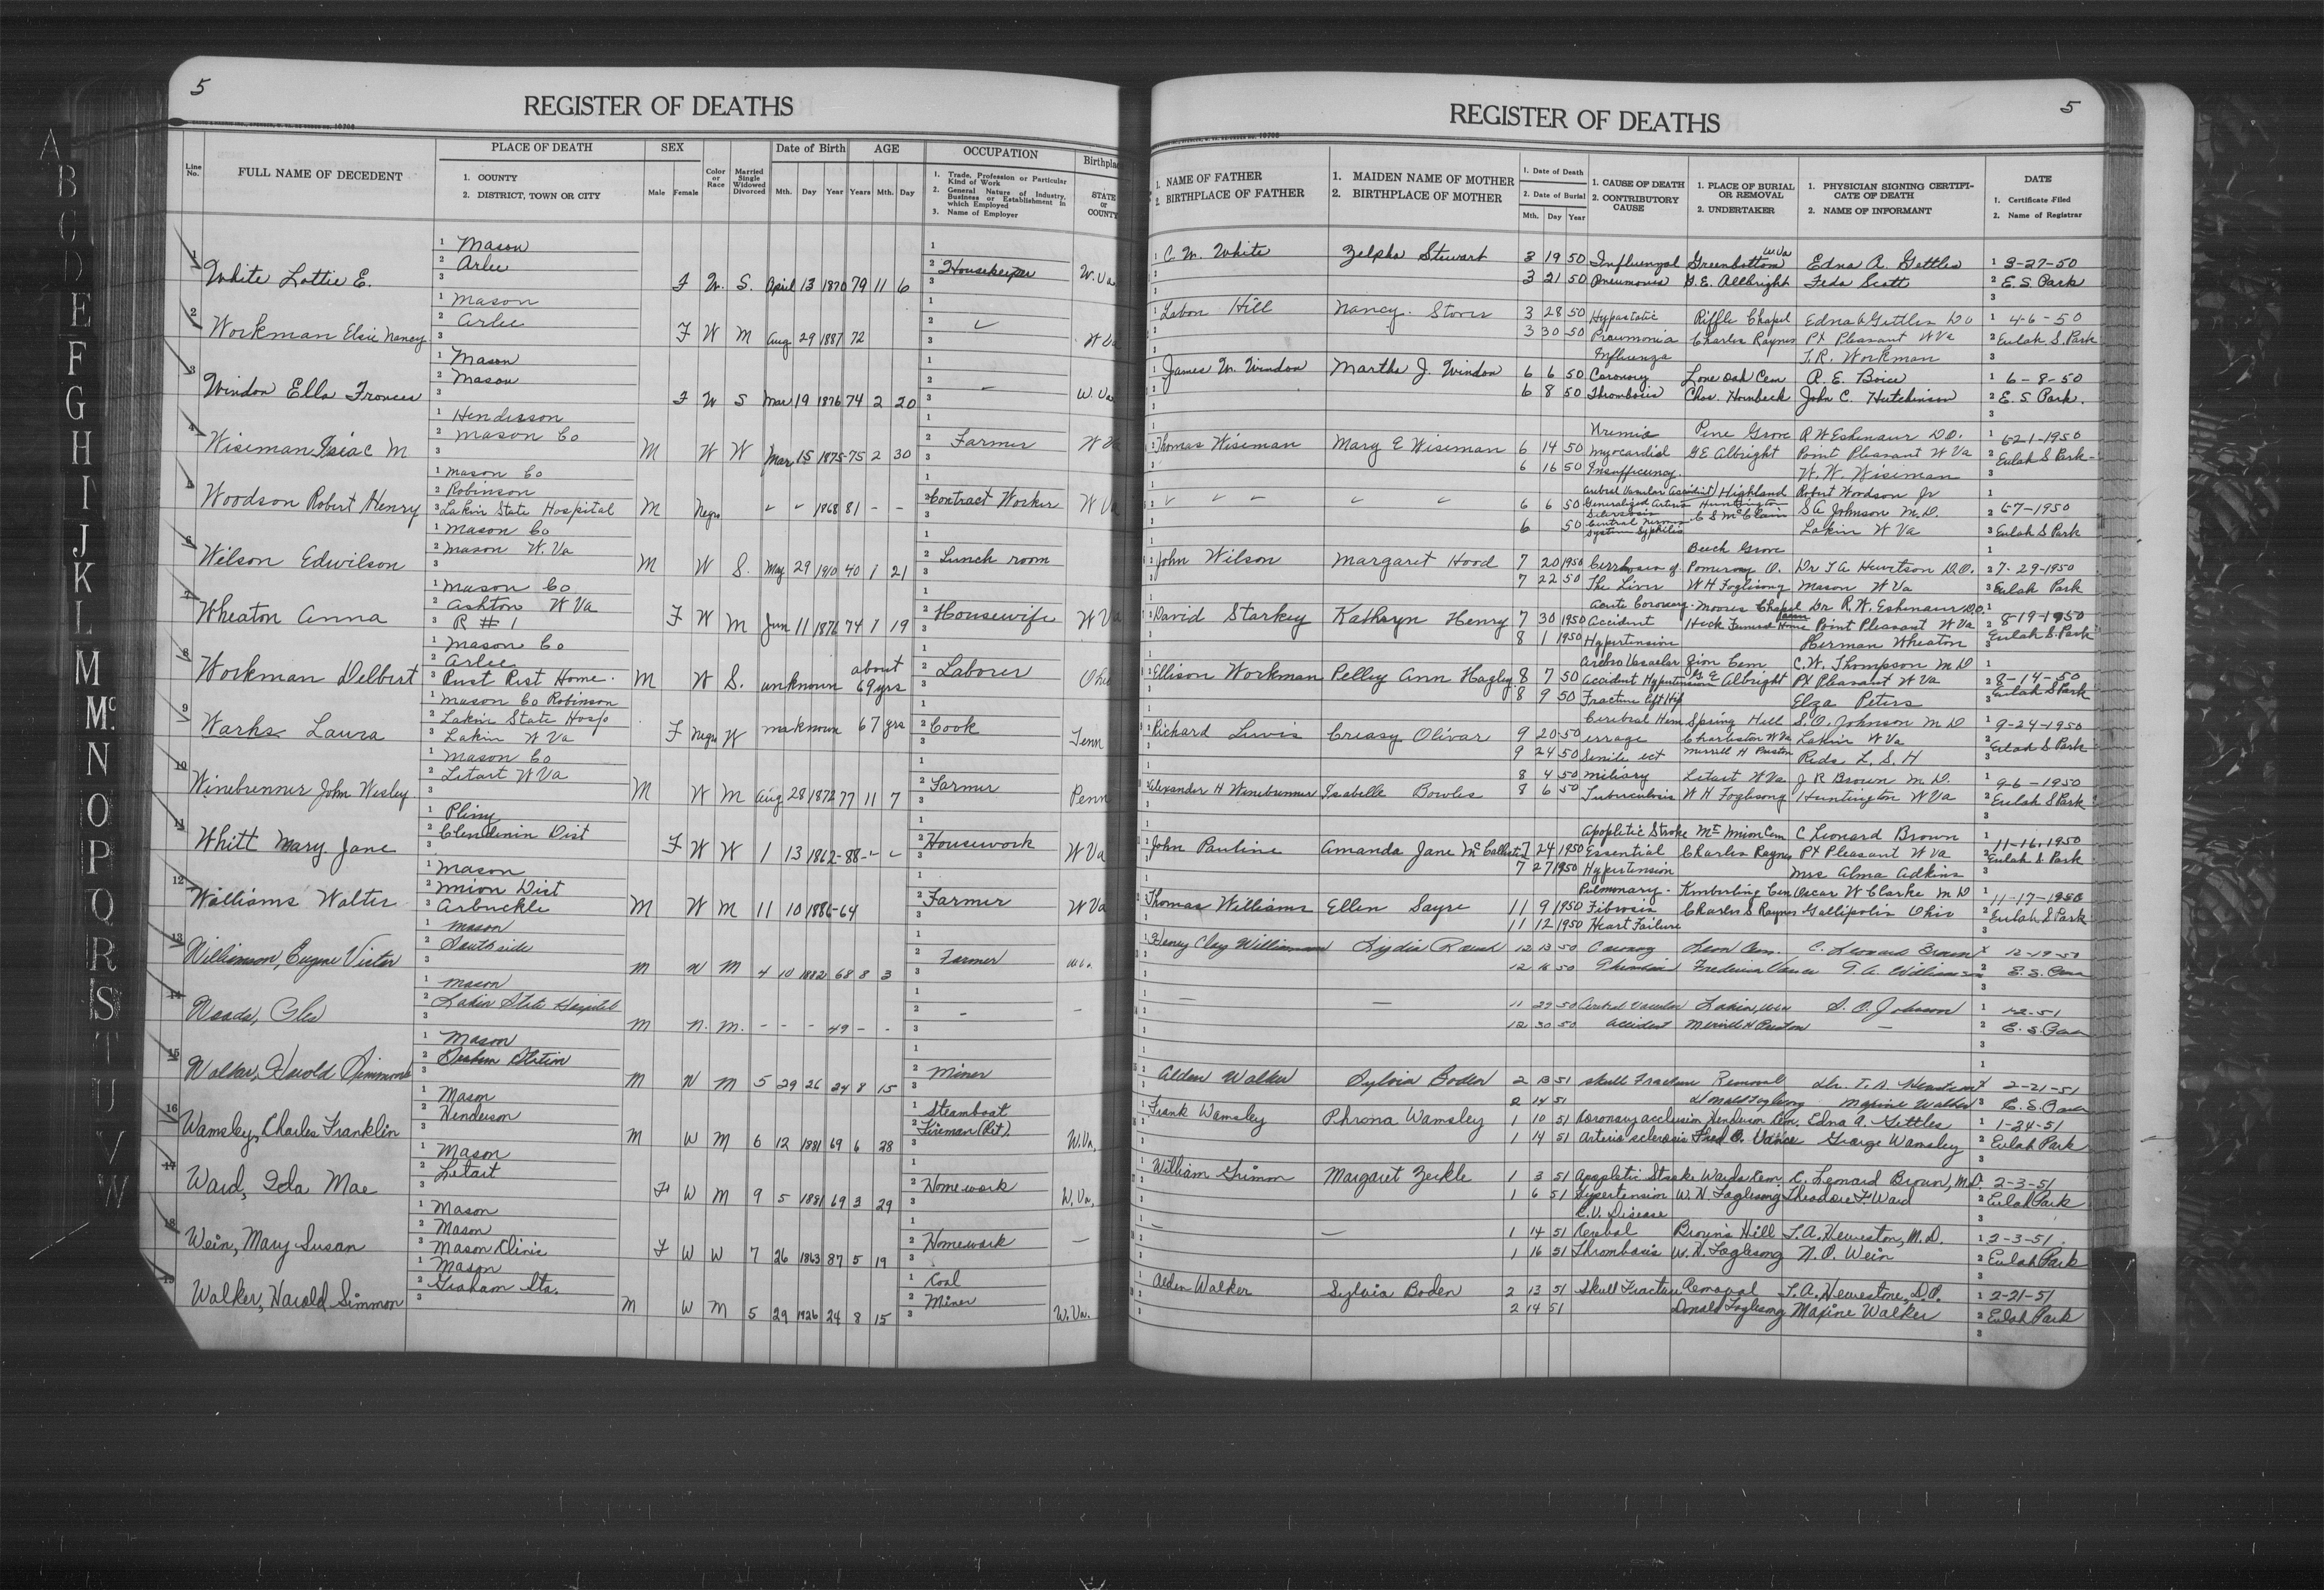 5
REGISTER OF DEATHS
Line No.
FULL NAME OF DECEDENT
PLACE OF DEATH
1. COUNTY
2. DISTRICT, TOWN OR CITY
SEX
Male Female
Color or Race
Married Single Widowed Divorced
Date of Birth
Mth. Day Year
AGE
Years Mth. Day
OCCUPATION
1. Trade, Profession or Particular Kind of Work
2. General Nature of Industry, Business or Establishment in which Employed
3. Name of Employer
Birthplace
STATE or COUNTY
1 White Lottie E. 1 Mason 2 Arlee 3 F W. S. April 13 1870 79 11 6 Housekeeper W.Va
2 Workman Elsie Nancy 1 Mason 2 Arlee 3 F W M Aug 29 1887 72 W Va
3 Windon Ella Frances 1 Mason 2 Mason 3 F W S Mar 19 1876 74 2 20 W. Va
4 Wiseman Isiac M 1 Henderson 2 Mason Co 3 M W W Mar 15 1875 75 2 30 Farmer W Va
5 Woodson Robert Henry 1 Mason Co 2 Robinson 3 Lakin State Hospital M Negro 1868 81 - - Contract Worker W Va
6 Wilson Edwilson 1 Mason Co 2 Mason W. Va 3 M W S. May 29 1910 40 1 21 Lunch room
7 Wheaton Anna 1 Mason Co 2 Ashton W Va 3 R # 1 F W M Jun 11 1876 74 1 19 Housewife W Va
8 Workman Delbert 1 Mason Co 2 Arlee 3 Rest Home. M W S. unknown about 69 yrs Laborer Ohio
9 Warks Laura 1 Mason Co Robinson 2 Lakin State Hosp 3 Lakin W Va F Negro W unknown 67 yrs Cook Tenn
10 Winebrenner John Wesley 1 Mason Co 2 Letart W Va M W M Aug 28 1872 77 11 7 Farmer Penn
11 Whitt Mary Jane 1 Pliny 2 Clendenin Dist 3 F W W 1 13 1862 - 88 Housework W Va
12 Williams Walter 1 Mason 2 Union Dist 3 Arbuckle M W M 11 10 1886 - 64 Farmer W Va
13 Williamson, Eugene Victor 1 Mason 2 Southside 3 M W M 4 10 1882 68 8 3 Farmer
14 Woods, 1 Mason 2 Lakin State Hospital 3 M N. M. - - - 49 - - -
15 Walker, Harold Simmons 1 Mason 2 Station 3 M W M 5 29 26 24 8 15 Miner
16 Wamsley, Charles Franklin 1 Mason 2 Henderson M W M 6 12 1881 69 6 28 Steamboat Fireman (Ret). W.Va.
17 Ward, Ida Mae 1 Mason 2 Letart F W M 9 5 1881 69 3 29 Homework W.Va.
18 Wein, Mary Susan 1 Mason 2 Mason 3 Mason Clinic F W W 7 26 1863 87 5 19 Homework —
19 Walker, Harold Simmon 1 Mason 2 Graham Sta. 3 M W M 5 29 1926 24 8 15 Coal Miner W.Va.
REGISTER OF DEATHS
5
1. NAME OF FATHER
2. BIRTHPLACE OF FATHER
1. MAIDEN NAME OF MOTHER
2. BIRTHPLACE OF MOTHER
1. Date of Death
2. Date of Burial
Mth. Day Year
1. CAUSE OF DEATH
2. CONTRIBUTORY CAUSE
1. PLACE OF BURIAL OR REMOVAL
2. UNDERTAKER
1. PHYSICIAN SIGNING CERTIFICATE OF DEATH
2. NAME OF INFORMANT
DATE
1. Certificate Filed
2. Name of Registrar
C. M. White Zelpha Stewart 3 19 50 Influenzal Greenbottom W Va Edna A. Gettles 3-27-50
3 21 50 Pneumonia G. E. Allbright Feda Scott E. S. Park
Labon Hill Nancy. Stover 3 28 50 Hypostatic Riffle Chapel Edna A Gettles D O 4-6-50
3 30 50 Pneumonia Charles Raynes Pt Pleasant W Va Eulah S. Park
Influenza T. R. Workman
James W. Windon Martha J. Windon 6 6 50 Coronary Lone Oak Cem R. E. Boice 6-8-50
6 8 50 Thrombosis Chas. Hornbeck John C. Hutchinson E. S. Park.
Uremia Pine Grove R W Eshenaur D O.
Thomas Wiseman Mary E Wiseman 6 14 50 Myocardial G E Albright Point Pleasant W Va 6-21-1950
6 16 50 Insufficiency. W. W. Wiseman Eulah S Park
Cerebral Vascular Accident Highland Robert Woodson Jr
6 6 50 Generalized Arterio Sclerosis Huntington S A Johnson M. D. 6-7-1950
6 50 Central Nervous System Syphilis C S McClain Lakin W Va Eulah S Park
Beech Grove
John Wilson Margaret Hood 7 20 1950 Cirrhosis of Pomeroy O. Dr T A Hewetson D.O. 7-29-1950
7 22 50 The Liver W H Foglesong Mason W Va Eulah Park
Acute Coronary Moores Chapel Dr R. W. Eshenaur D.O.
David Starkey Kathryn Henry 7 30 1950 Accident Heck Funeral Home Point Pleasant W Va 8-19-1950
8 1 1950 Hypertension Herman Wheaton Eulah S. Park
Zion Cem C. W. Thompson M D
Ellison Workman Pelley Ann Hagley 8 7 50 Accident Hypertension G E Albright Pt Pleasant W Va 8-14-50
8 9 50 Fracture Left Hip Elza Peters Eulah S Park
Cerebral Hem Spring Hill S. O. Johnson M D 9-24-1950
Richard Lewis Creasy Olivar 9 20 50 errage Charleston W Va Lakin W Va
9 24 50 Senile Merrill H Preston Reds L. S. H Eulah S Park
8 4 50 Miliary Letart W Va J R Brown M. D. 9-6-1950
Alexander H Winebrenner Isabelle Bowles 8 6 50 Tuberculosis W H Foglesong Huntington W Va Eulah S Park
Apopletic Stroke Mt Union Cem C Leonard Brown 11-16-1950
John Pauline Amanda Jane McCallister 7 24 1950 Essential Charles Raynes Pt Pleasant W Va Eulah S. Park
7 27 1950 Hypertension Mrs Alma Adkins
Pulmonary - Kimberling Cem Oscar W Clarke M D 11-17-1950
Thomas Williams Ellen Sayre 11 9 1950 Fibrosis Charles S Raynes Gallipolis Ohio Eulah S Park
11 12 1950 Heart Failure
Henry Clay Williamson Lydia Roush 12 13 50 Coronary Leon Cem. C. Leonard Brown 12-19-50
12 16 50 Frederick Vance E. S. Park
— — 11 29 50 Cerebral Vascular Lakin, W.Va S. O. Johnson 1-2-51
12 30 50 Accident Merrill H Preston — E. S. Park
Alden Walker Sylvia Boden 2 13 51 Skull Fracture Removal Dr. T. A. 2-21-51
2 14 51 Donald Foglesong Maxine Walker E. S. Park
Frank Wamsley Phrona Wamsley 1 10 51 Coronary acclusion Henderson Cem. Edna A. Gettles 1-24-51
1 14 51 Arterio sclerosis Fred O. Vance George Wamsley Eulah Park
William Grimm Margaret Zerkle 1 3 51 Apopletic Stroke Wards Cem. C. Leonard Brown, M.D. 2-3-51
1 6 51 Hypertension W. H. Foglesong Theodore F. Ward Eulah Park
C. V. Disease
— — 1 14 51 Cerebal Browns Hill T. A. Heweston, M. D. 2-3-51
1 16 51 Thrombosis W. H. Foglesong N. O. Wein Eulah Park
Alden Walker Sylvia Boden 2 13 51 Skull Fracture Removal T. A. Hewestone, D. O. 2-21-51
2 14 51 Donald Foglesong Maxine Walker Eulah Park
A
B
C
D
E
F
G
H
I
J
K
L
M
Mc.
N
O
P
Q
R
S
T
U
V
W